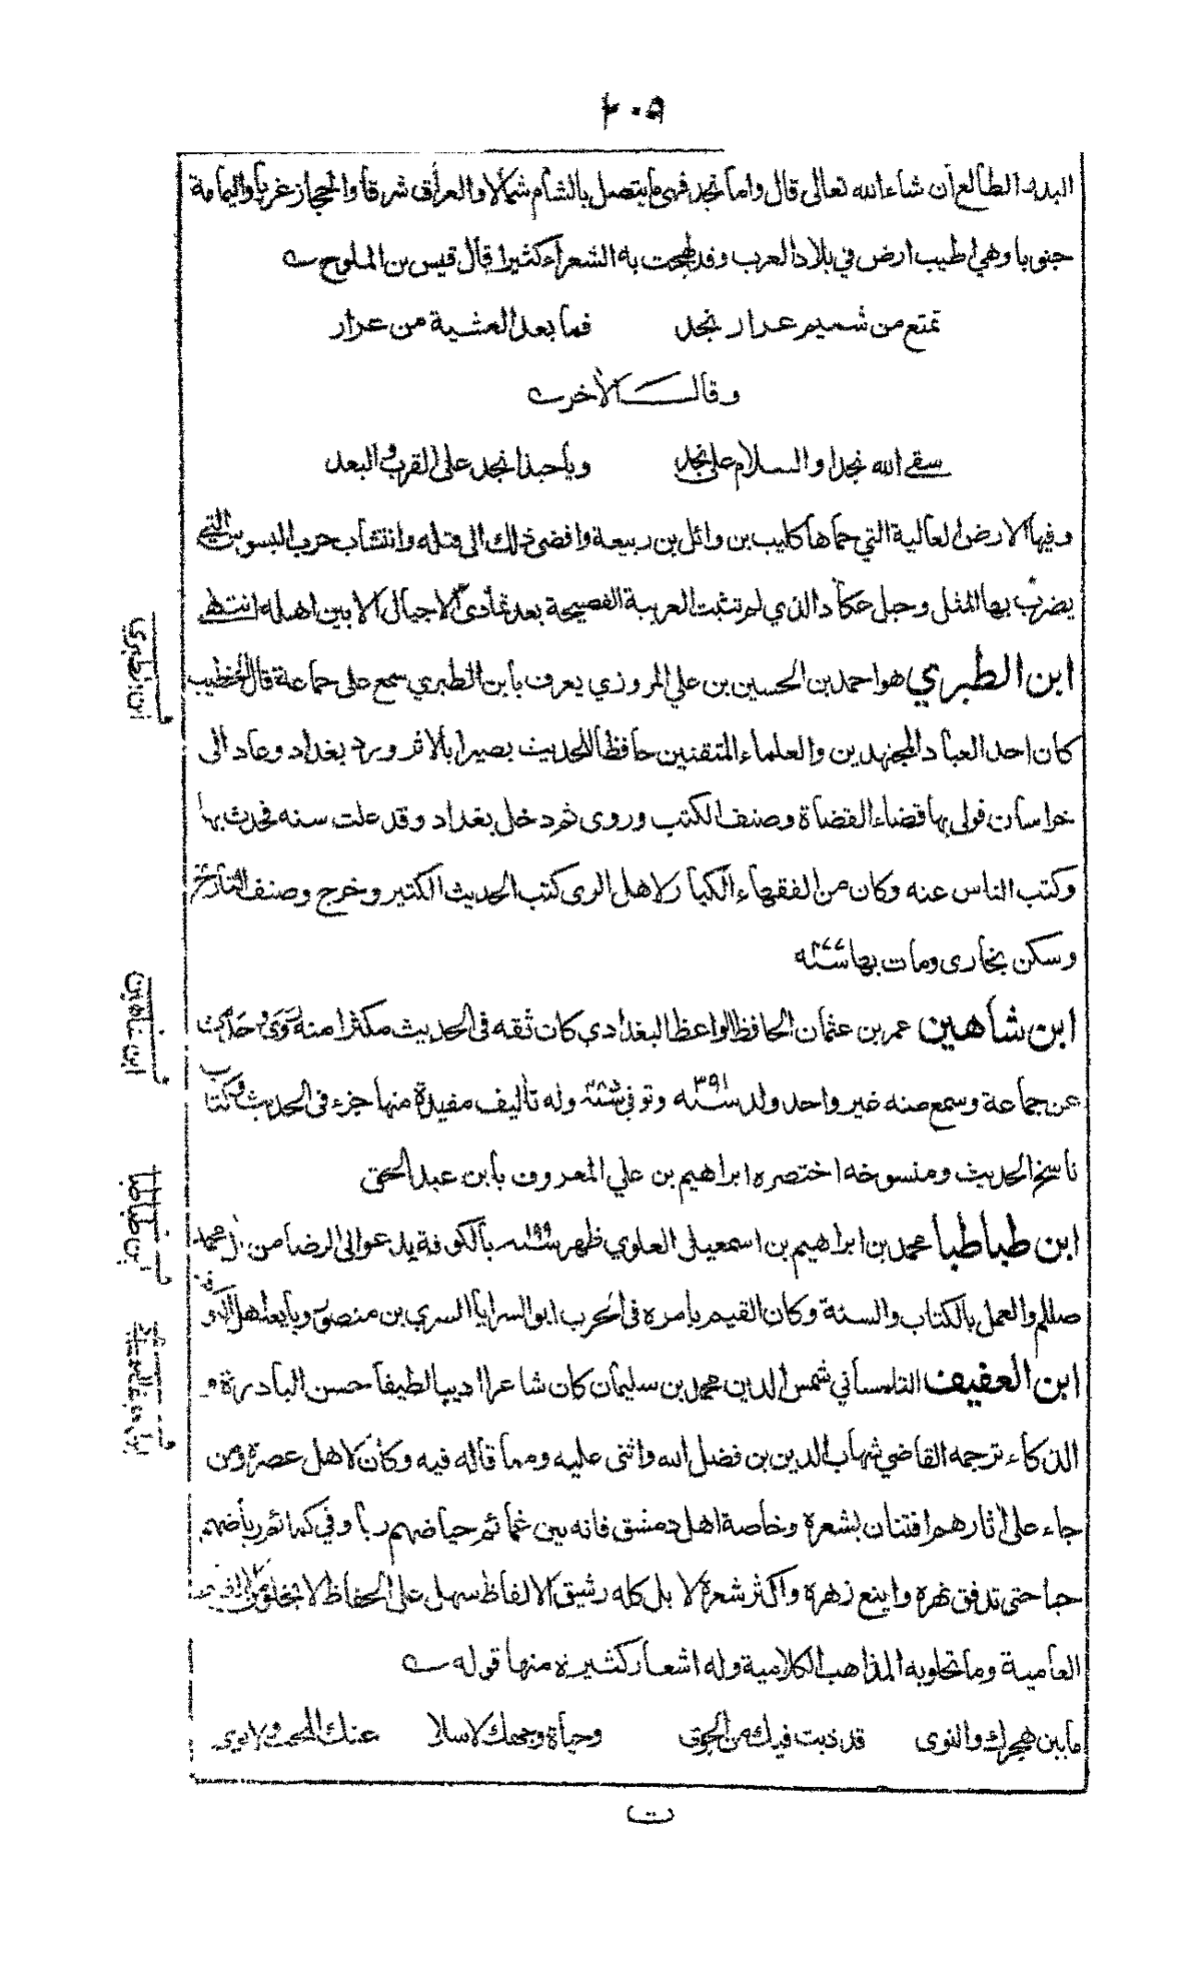 ٢٠٥
البدر الطالع ان شاء الله تعالى قال واما نجد فهى ما يتصل بالشام شمالا والعراق شرقا والحجاز غربا واليمامة
جنوبا وهي اطيب ارض في بلاد العرب وقد لهجت به الشعراء كثيرا قال قيس بن الملوح
تمتع من شميم عرار نجد فما بعد العشية من عرار
وقال الآخر
سقى الله نجدا والسلام على نجد ويا حبذا نجد على القرب والبعد
وفيها الارض العالية التي حماها كليب بن وائل بن ربيعة وافضى ذلك الى قتله وانتشاب حرب البسوس التي
يضرب بها المثل وجبل عكاد الذي لم تثبت العربية الفصيحة بعد تمادى الاجيال الا بين اهله انتهى
ابن الطبري هو احمد بن الحسين بن علي المروزي يعرف بابن الطبري سمع على جماعة قال الخطيب
كان احد العباد المجتهدين والعلماء المتقنين حافظا للحديث بصيرا بالاثر ورد بغداد وعاد الى
خراسان فولى بها قضاء القضاة وصنف الكتب وروى ثم دخل بغداد وقد علت سنه فحدث بها
وكتب الناس عنه وكان من الفقهاء الكبار لاهل الرى كتب الحديث الكثير وخرج وصنف التاريخ
وسكن بخارى ومات بها سنه
ابن شاهين عمر بن عثمان الحافظ الواعظ البغدادي كان ثقه فى الحديث مكثرا منه روى وحدث
عن جماعة وسمع منه غير واحد ولد سنه وتوفي سنه وله تأليف مفيدة منها جزء فى الحديث وكتاب
ناسخ الحديث ومنسوخه اختصره ابراهيم بن علي المعروف بابن عبد الحق
ابن طباطبا محمد بن ابراهيم بن اسمعيل العلوي ظهر سنه ١٩٩ بالكوفة يدعو الى الرضا من ال محمد
صللم والعمل بالكتاب والسنة وكان القيم بامره فى الحرب ابو السرايا السري بن منصور وبايعه اهل الكوفة
ابن العفيف التلمساني شمس الدين محمد بن سليمان كان شاعرا اديبا لطيفا حسن البادرة و
الذكاء ترجمه القاضي شهاب الدين بن فضل الله واثنى عليه ومما قاله فيه وكان لاهل عصره ومن
جاء على آثارهم افتتان بشعره وخاصة اهل دمشق فانه بين غمائم حياضهم ربا وفي كمائم رياضهم
حبا حتى تدفق نهره واينع زهره واكثر شعره لا بل كله رشيق الالفاظ سهل على الحفاظ لا يخلو من الالفاظ
العامية وما تحلو به المذاهب الكلامية وله اشعار كثيرة منها قوله
ما بين هجرك والنوى قد ذبت فيك من الجوى وحياة وجهك لا سلا عنك المحب ولا نوى
ت
ابن الطبري
ابن شاهين
ابن طباطبا